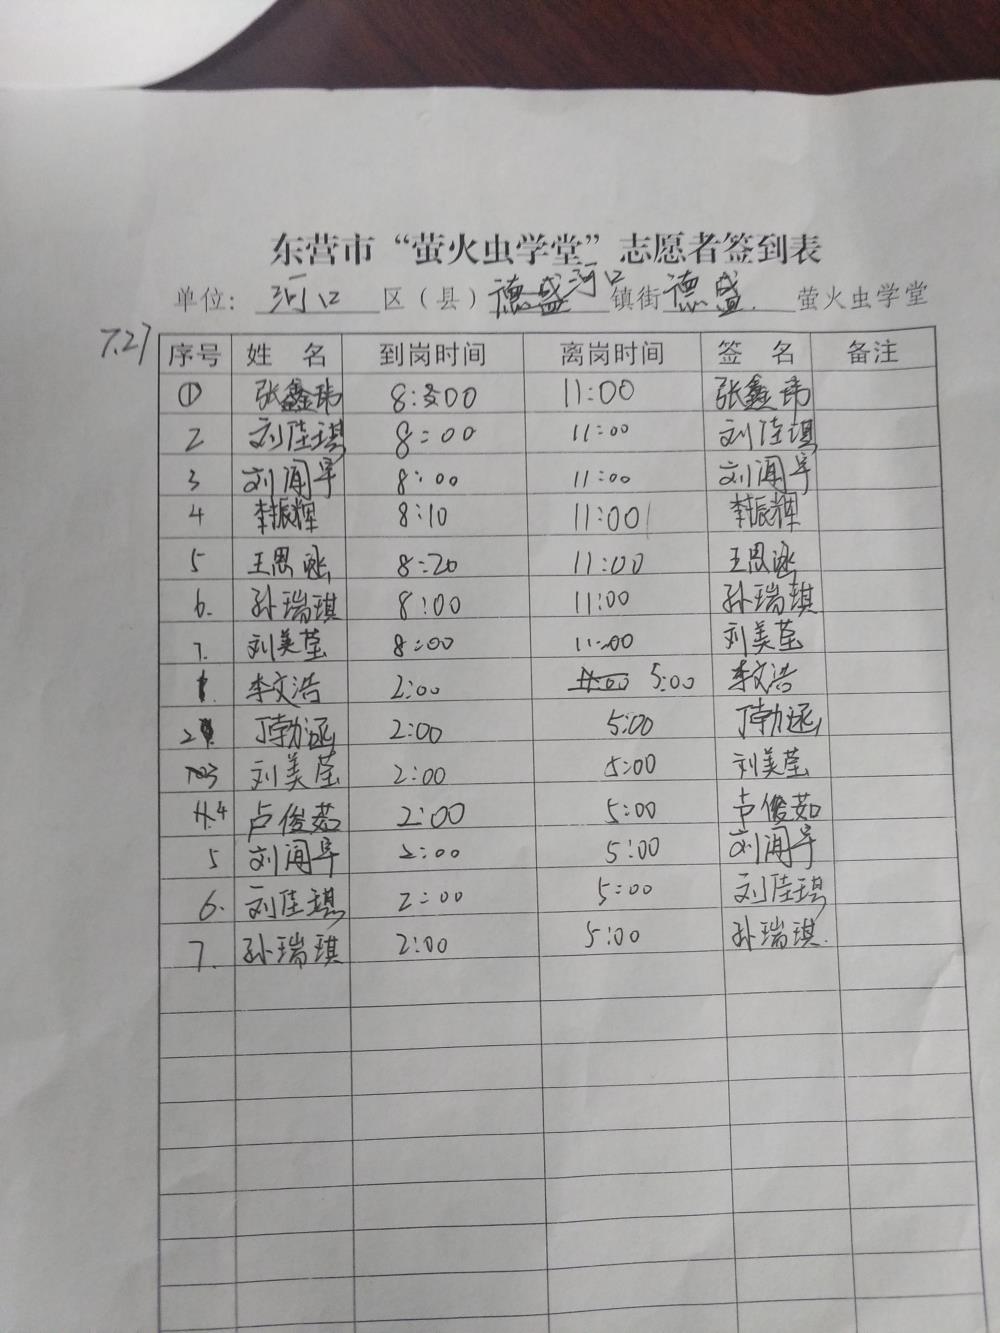 东营市“萤火虫学堂”志愿者签到表
单位: 河口 区（县） 河口 镇街 德盛 萤火虫学堂
7.27
序号 姓名 到岗时间 离岗时间 签名 备注
① 张鑫玮 8:00 11:00 张鑫玮
2 刘佳琪 8:00 11:00 刘佳琪
3 刘闻宇 8:00 11:00 刘闻宇
4 李振辉 8:10 11:00 李振辉
5 王思涵 8:20 11:00 王思涵
6. 孙瑞琪 8:00 11:00 孙瑞琪
7. 刘美莹 8:00 11:00 刘美莹
1. 李文浩 2:00 5:00 李文浩
2 丁勃涵 2:00 5:00 丁勃涵
3 刘美莹 2:00 5:00 刘美莹
4 卢俊茹 2:00 5:00 卢俊茹
5 刘闻宇 2:00 5:00 刘闻宇
6. 刘佳琪 2:00 5:00 刘佳琪
7. 孙瑞琪 2:00 5:00 孙瑞琪.